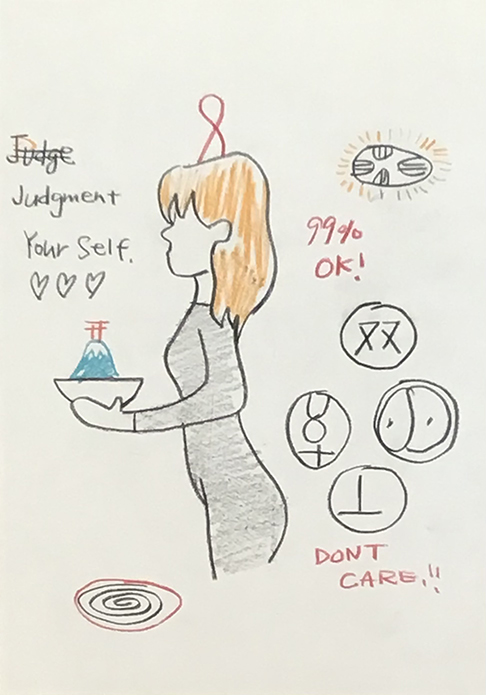 Judge
Judgment
Your Self.
♡♡♡
99%
OK!
DONT
CARE!!